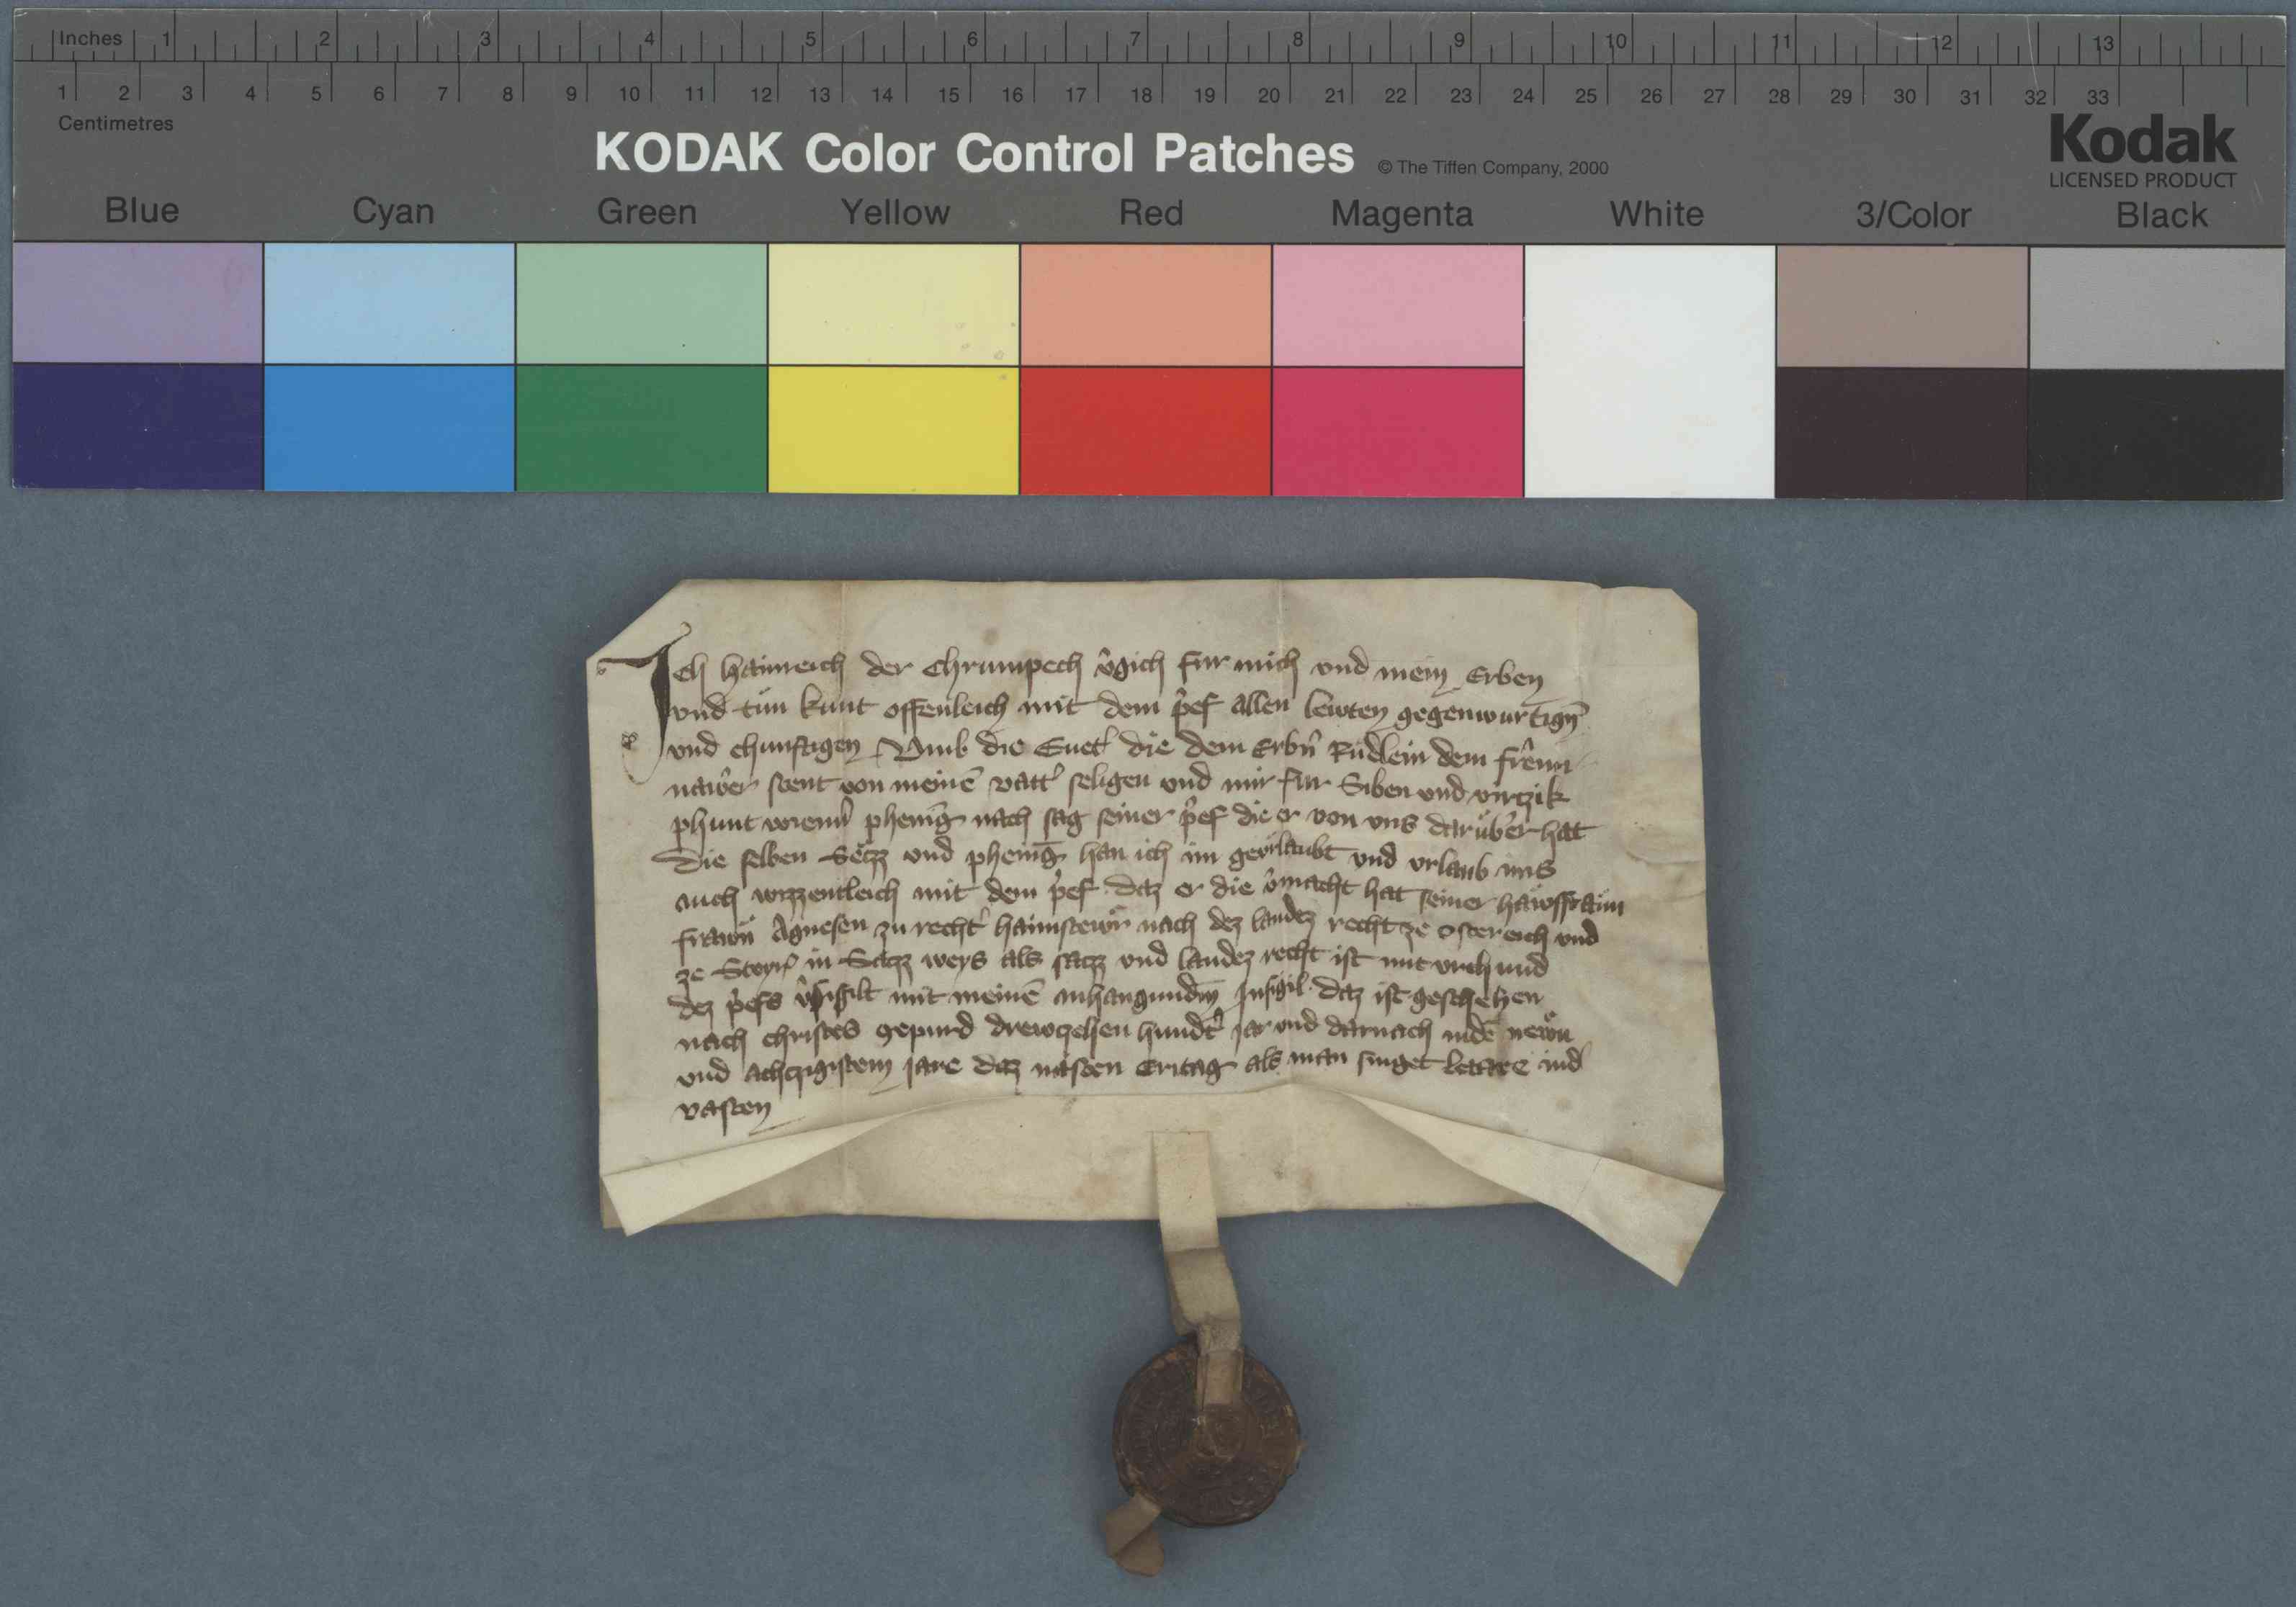 Inches 1 2 3 4 5 6 7 8 9 10 11 12 13
1 2 3 4 5 6 7 8 9 10 11 12 13 14 15 16 17 18 19 20 21 22 23 24 25 26 27 28 29 30 31 32 33
Centimetres
KODAK Color Control Patches © The Tiffen Company, 2000
Kodak
LICENSED PRODUCT
Blue Cyan Green Yellow Red Magenta White 3/Color Black
Ich Hainreich der Chrumpech v̂gich fur mich vnd mein Erben
vnd tůn kunt offenleich mit dem p̂ef allen lewten gegenwurtign̄
vnd chunftigen Vmb die Guet̂ die dem Erbn̂ Rüdlein dem
stent von meinē vatt̂ seligen vnd mir fur Siben vnd virtzik
phunt pheniḡ nach sag seiner p̂ef die er von vns darüber hat
Die selben Sëtz vnd pheniḡ han ich im geurlaubt vnd vrlaub ims
auch wizzentleich mit dem p̂ef daz er die v̂macht hat seiner hawsfraun
frawn Agnesen zu recht̂ haimstewr nach dez landez recht ze Ostereich vnd
ze Steyr̂ in Satz weys als satz vnd landez recht ist mit vrchund
dez p̂efs mit meinē anhangundm̄ Insigil daz ist geschehen
nach christes gepurd drewtzehen hundt̂ jar vnd darnach in dē newn
vnd achtzigistem jare dez nasten Eritag als man singet letare in d̂
vasten